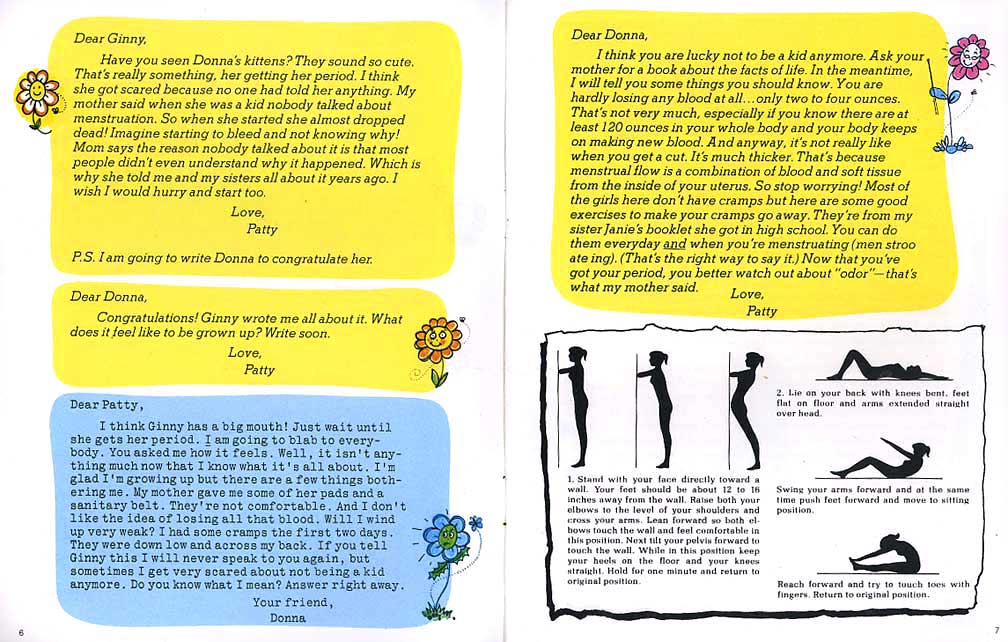 Dear Ginny,
Have you seen Donna's kittens? They sound so cute.
That's really something, her getting her period. I think
she got scared because no one had told her anything. My
mother said when she was a kid nobody talked about
menstruation. So when she started she almost dropped
dead! Imagine starting to bleed and not knowing why!
Mom says the reason nobody talked about it is that most
people didn't even understand why it happened. Which is
why she told me and my sisters all about it years ago. I
wish I would hurry and start too.
Love,
Patty
P.S. I am going to write Donna to congratulate her.
Dear Donna,
Congratulations! Ginny wrote me all about it. What
does it feel like to be grown up? Write soon.
Love,
Patty
Dear Patty,
I think Ginny has a big mouth! Just wait until
she gets her period. I am going to blab to every-
body. You asked me how it feels. Well, it isn't any-
thing much now that I know what it's all about. I'm
glad I'm growing up but there are a few things both-
ering me. My mother gave me some of her pads and a
sanitary belt. They're not comfortable. And I don't
like the idea of losing all that blood. Will I wind
up very weak? I had some cramps the first two days.
They were down low and across my back. If you tell
Ginny this I will never speak to you again, but
sometimes I get very scared about not being a kid
anymore. Do you know what I mean? Answer right away.
Your friend,
Donna
6
Dear Donna,
I think you are lucky not to be a kid anymore. Ask your
mother for a book about the facts of life. In the meantime,
I will tell you some things you should know. You are
hardly losing any blood at all...only two to four ounces.
That's not very much, especially if you know there are at
least 120 ounces in your whole body and your body keeps
on making new blood. And anyway, it's not really like
when you get a cut. It's much thicker. That's because
menstrual flow is a combination of blood and soft tissue
from the inside of your uterus. So stop worrying! Most of
the girls here don't have cramps but here are some good
exercises to make your cramps go away. They're from my
sister Janie's booklet she got in high school. You can do
them everyday and when you're menstruating (men stroo
ate ing). (That's the right way to say it.) Now that you've
got your period, you better watch out about "odor"—that's
what my mother said.
Love,
Patty
1. Stand with your face directly toward a
wall. Your feet should be about 12 to 16
inches away from the wall. Raise both your
elbows to the level of your shoulders and
cross your arms. Lean forward so both el-
bows touch the wall and feel comfortable in
this position. Next tilt your pelvis forward to
touch the wall. While in this position keep
your heels on the floor and your knees
straight. Hold for one minute and return to
original position.
2. Lie on your back with knees bent, feet
flat on floor and arms extended straight
over head.
Swing your arms forward and at the same
time push feet forward and move to sitting
position.
Reach forward and try to touch toes with
fingers. Return to original position.
7